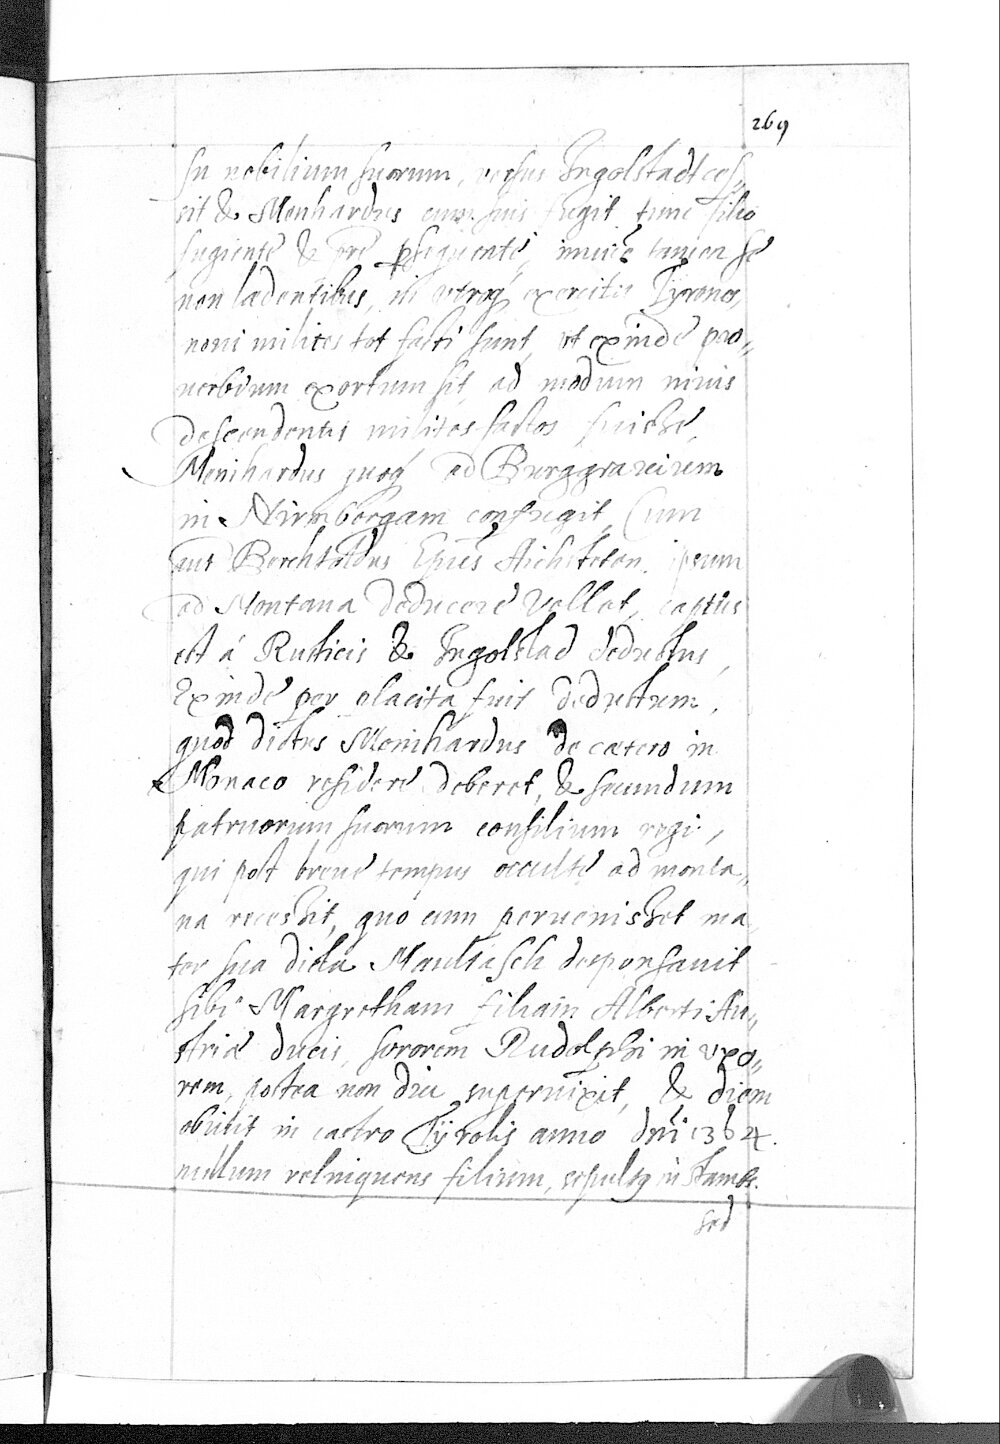 269
su nobilium suorum, versus Ingolstadt ces„
sit & Menhardus cum suis fugit tunc filio
fugiente & pre psequente, inuice tamen se
non ladentibus, in utroq exercitu Tyrones,
noui milites tot facti sunt, ut exinde pro„
uerbium exortum sit, ad modum niuis
descendentis milites factos fuisse,
Menihardus quoq ad Burggrauium
in Nirmbergam confugit, Cum
aut Berchtoldus Epus Aichsteten. ipsum
ad Montana deducere vellet, captus
est á Rusticis & Ingolstad deductus,
Exinde per placita fuit deductum,
quod dictus Menihardus de cætero in
Monaco residere deberet, & secundum
patruorum suorum consilium regi,
qui post breue tempus occulte ad monta„
na recessit, quo cum peruenisset ma
ter sua dicta Maultasch desponsauit
sibi Margretham filiam Alberti Au„
striæ ducis, sororem Rudolphi in uxo„
rem, postea non diu superuixit, & diem
obiuit in castro Tÿrolis anno dni 1364.
nullum relinquens filium, sepultq in Stambs.
sed